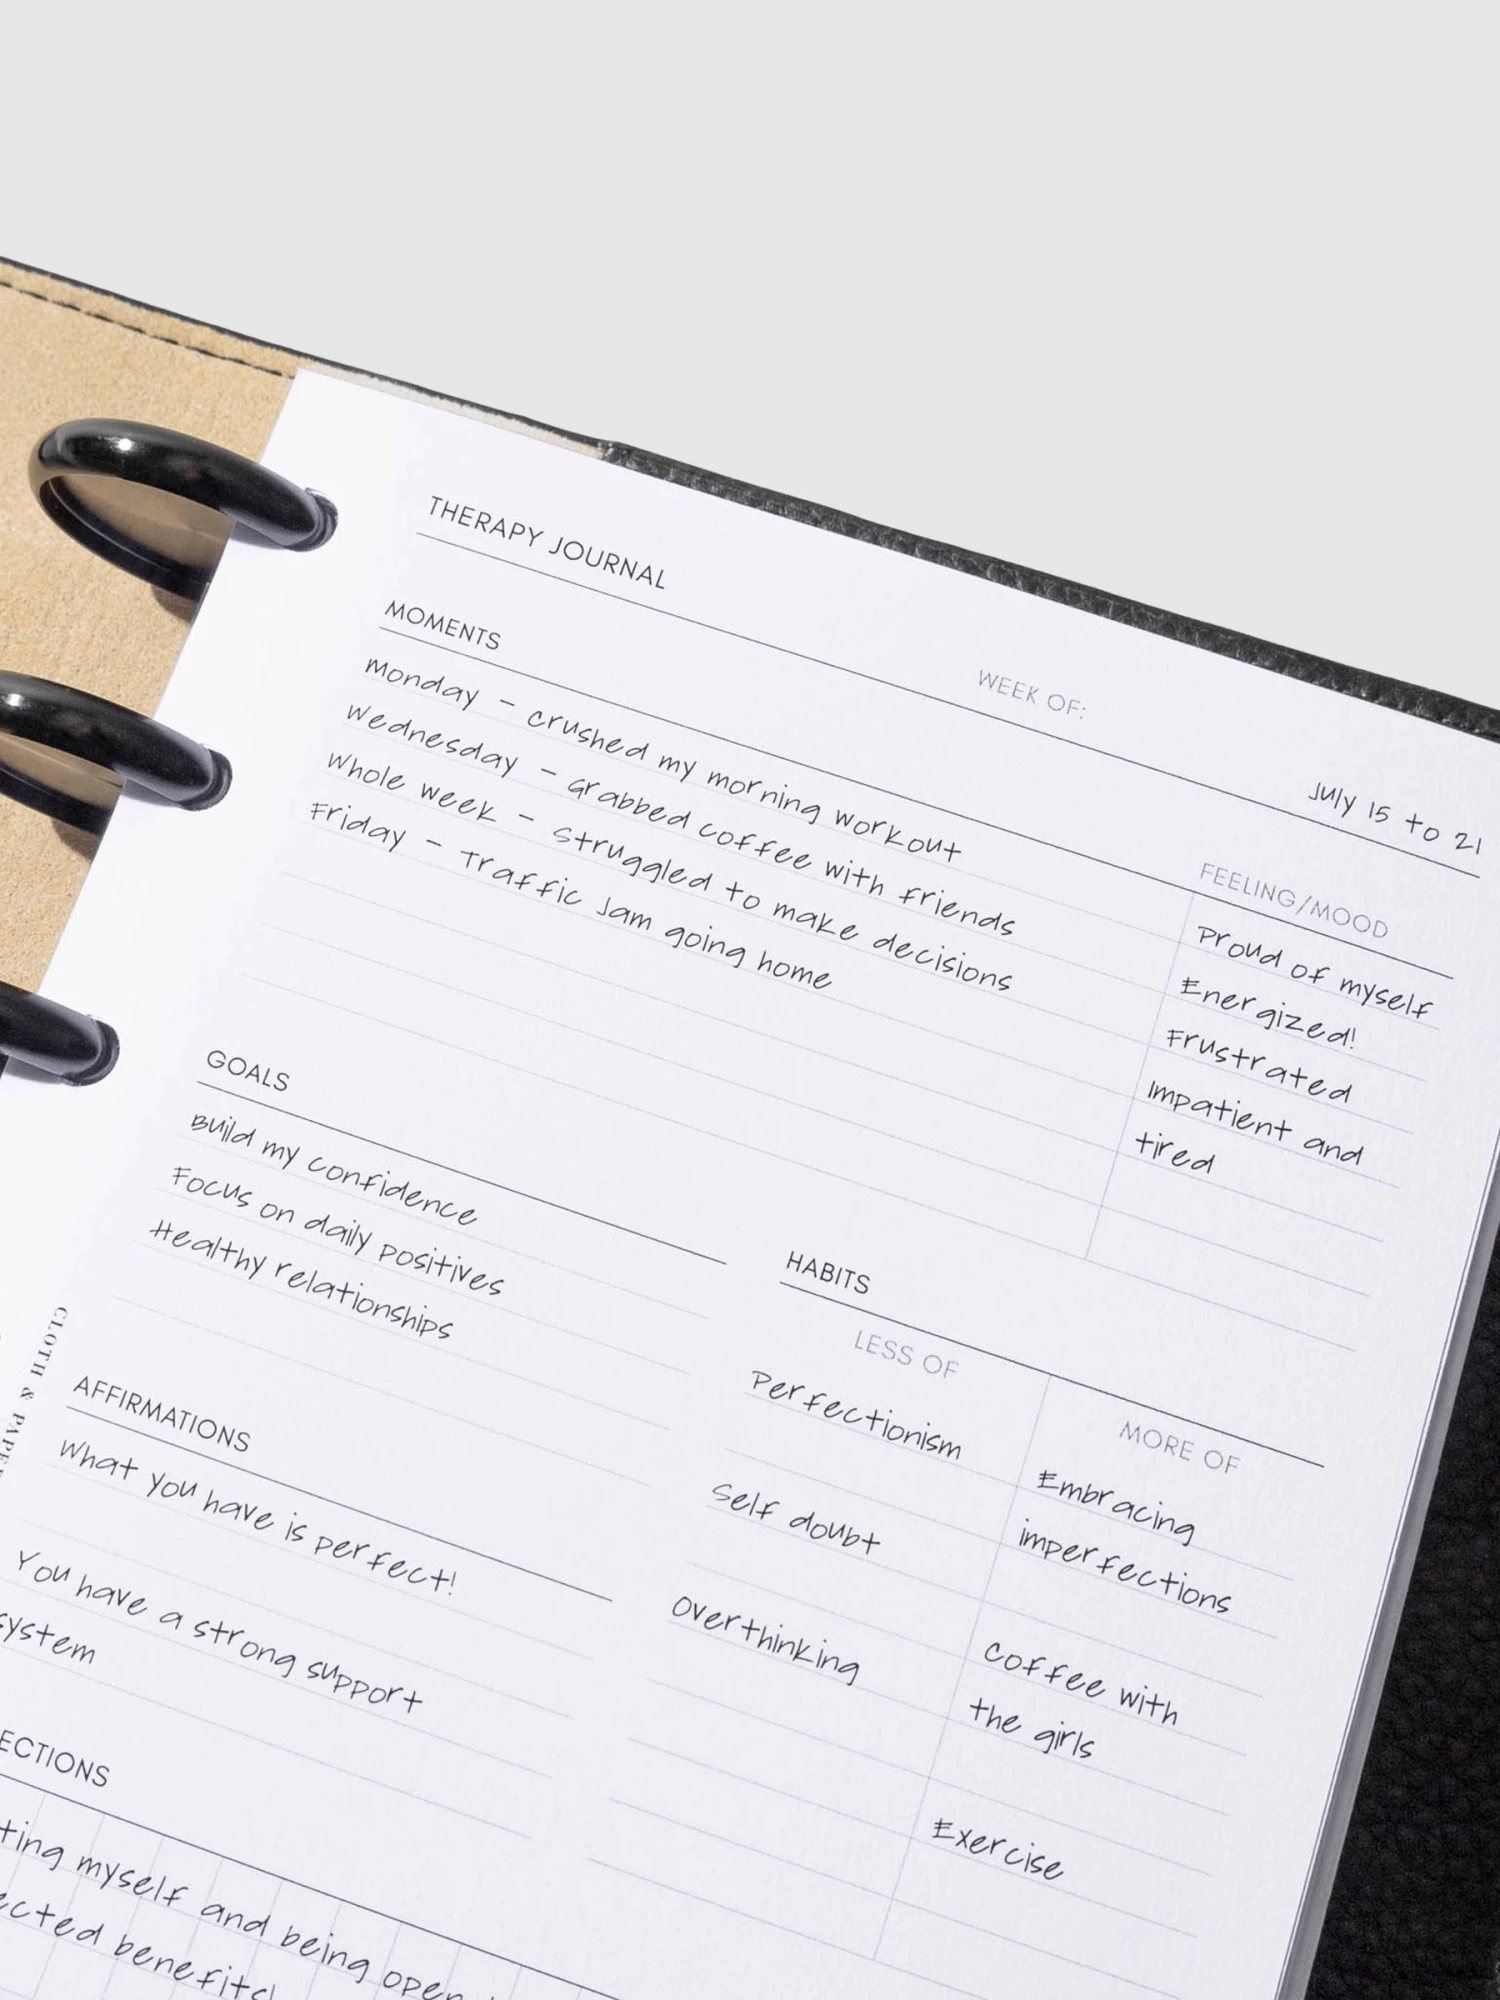 THERAPY JOURNAL
WEEK OF:
July 15 to 21
MOMENTS
FEELING/MOOD
Monday - Crushed my morning workout
Wednesday - Grabbed coffee with friends
Whole week - Struggled to make decisions
Friday - Traffic jam going home
Proud of myself
Energized!
Frustrated
Impatient and
tired
GOALS
Build my confidence
Focus on daily positives
Healthy relationships
HABITS
LESS OF
Perfectionism
Self doubt
Overthinking
MORE OF
Embracing
imperfections
Coffee with
the girls
Exercise
AFFIRMATIONS
What you have is perfect!
You have a strong support
system
ECTIONS
ting myself and being open
ected benefits!
CLOTH & PAPE